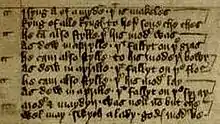 I syng a of a mydẽ þt is makeles
kyng of alle kynges to here sone che ches
he cã also stylle þer his moder was
as dew in aprylle þt fallyt on þe gras
he cam also stylle to his moderes bowr
as dew in aprille þt fallyt on þe flour
he cam also stylle þer his moder lay
as dew in aprille þt fallyt on þe spray
moder & maydyn was neuer non but che
wel may swych a lady godes moder be